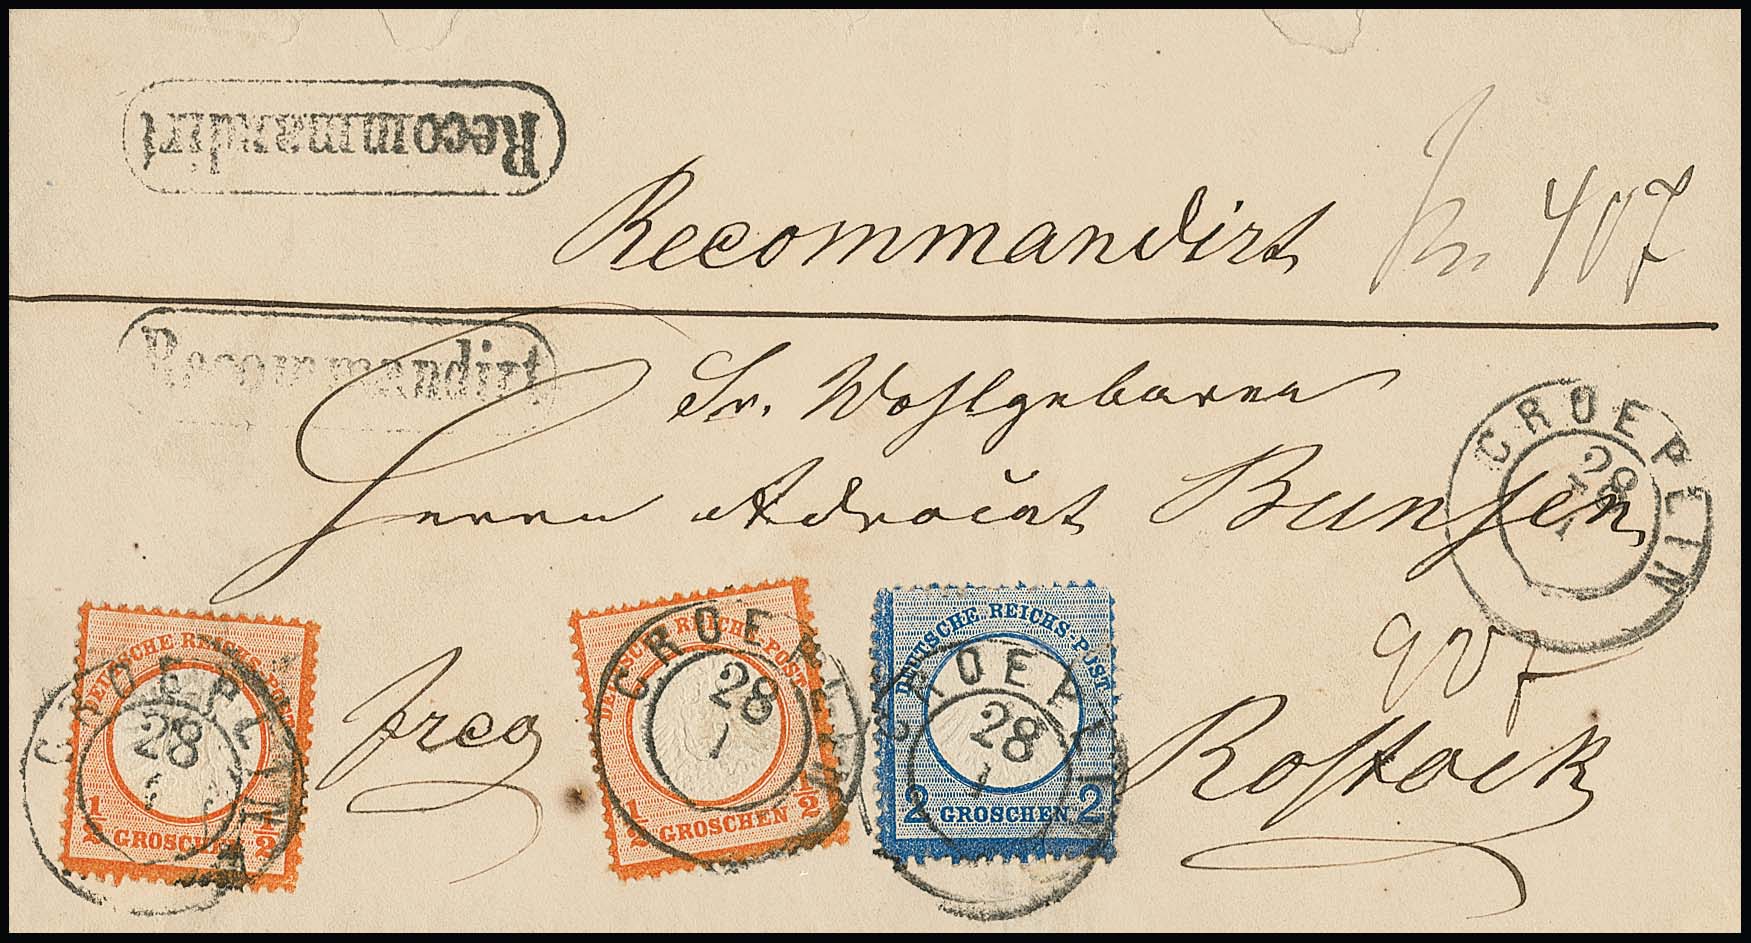 Recommandirt
Recommandirt No. 407
Recommandirt
Sr. Wohlgeboren
Herrn Advocat Bunsen
CROEPELIN
28
1
907
frco
Rostock
DEUTSCHE REICHS-POST
1/2 GROSCHEN 1/2
CROEPELIN
28
1
DEUTSCHE REICHS-POST
1/2 GROSCHEN 1/2
CROEPELIN
28
1
DEUTSCHE REICHS-POST
2 GROSCHEN 2
CROEPELIN
28
1